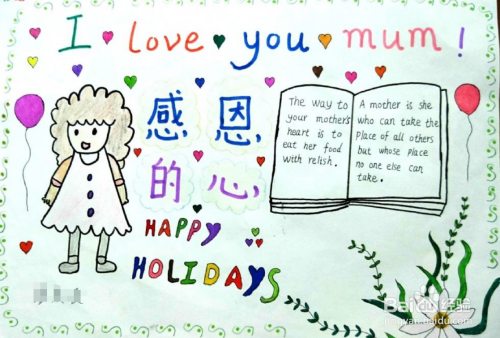 I love you mum!
感恩
的心
The way to
your mother's
heart is to
eat her food
with relish.
A mother is she
who can take the
place of all others
but whose place
no one else can
take.
HAPPY
HOLIDAYS
Baidu经验
jingyan.baidu.com